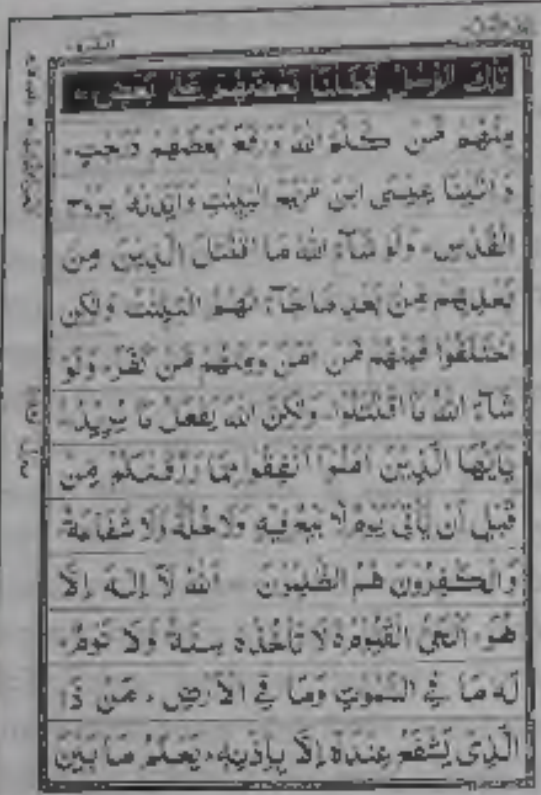 البقرة
تِلْكَ الرُّسُلُ فَضَّلْنَا بَعْضَهُمْ عَلٰى بَعْضٍ
مِنْهُمْ مَّنْ كَلَّمَ اللّٰهُ وَرَفَعَ بَعْضَهُمْ دَرَجٰتٍ
وَاٰتَيْنَا عِيْسَى ابْنَ مَرْيَمَ الْبَيِّنٰتِ وَاَيَّدْنٰهُ بِرُوْحِ
الْقُدُسِ وَلَوْ شَآءَ اللّٰهُ مَا اقْتَتَلَ الَّذِيْنَ مِنْ
بَعْدِهِمْ مِّنْ بَعْدِ مَا جَآءَتْهُمُ الْبَيِّنٰتُ وَلٰكِنِ
اخْتَلَفُوْا فَمِنْهُمْ مَّنْ اٰمَنَ وَمِنْهُمْ مَّنْ كَفَرَ وَلَوْ
شَآءَ اللّٰهُ مَا اقْتَتَلُوْا وَلٰكِنَّ اللّٰهَ يَفْعَلُ مَا يُرِيْدُ
يٰٓاَيُّهَا الَّذِيْنَ اٰمَنُوْٓا اَنْفِقُوْا مِمَّا رَزَقْنٰكُمْ مِّنْ
قَبْلِ اَنْ يَّاْتِيَ يَوْمٌ لَّا بَيْعٌ فِيْهِ وَلَا خُلَّةٌ وَّلَا شَفَاعَةٌ
وَالْكٰفِرُوْنَ هُمُ الظّٰلِمُوْنَ اَللّٰهُ لَآ اِلٰهَ اِلَّا
هُوَ اَلْحَيُّ الْقَيُّوْمُ لَا تَاْخُذُهٗ سِنَةٌ وَّلَا نَوْمٌ
لَهٗ مَا فِي السَّمٰوٰتِ وَمَا فِي الْاَرْضِ مَنْ ذَا
الَّذِيْ يَشْفَعُ عِنْدَهٗٓ اِلَّا بِاِذْنِهٖ يَعْلَمُ مَا بَيْنَ